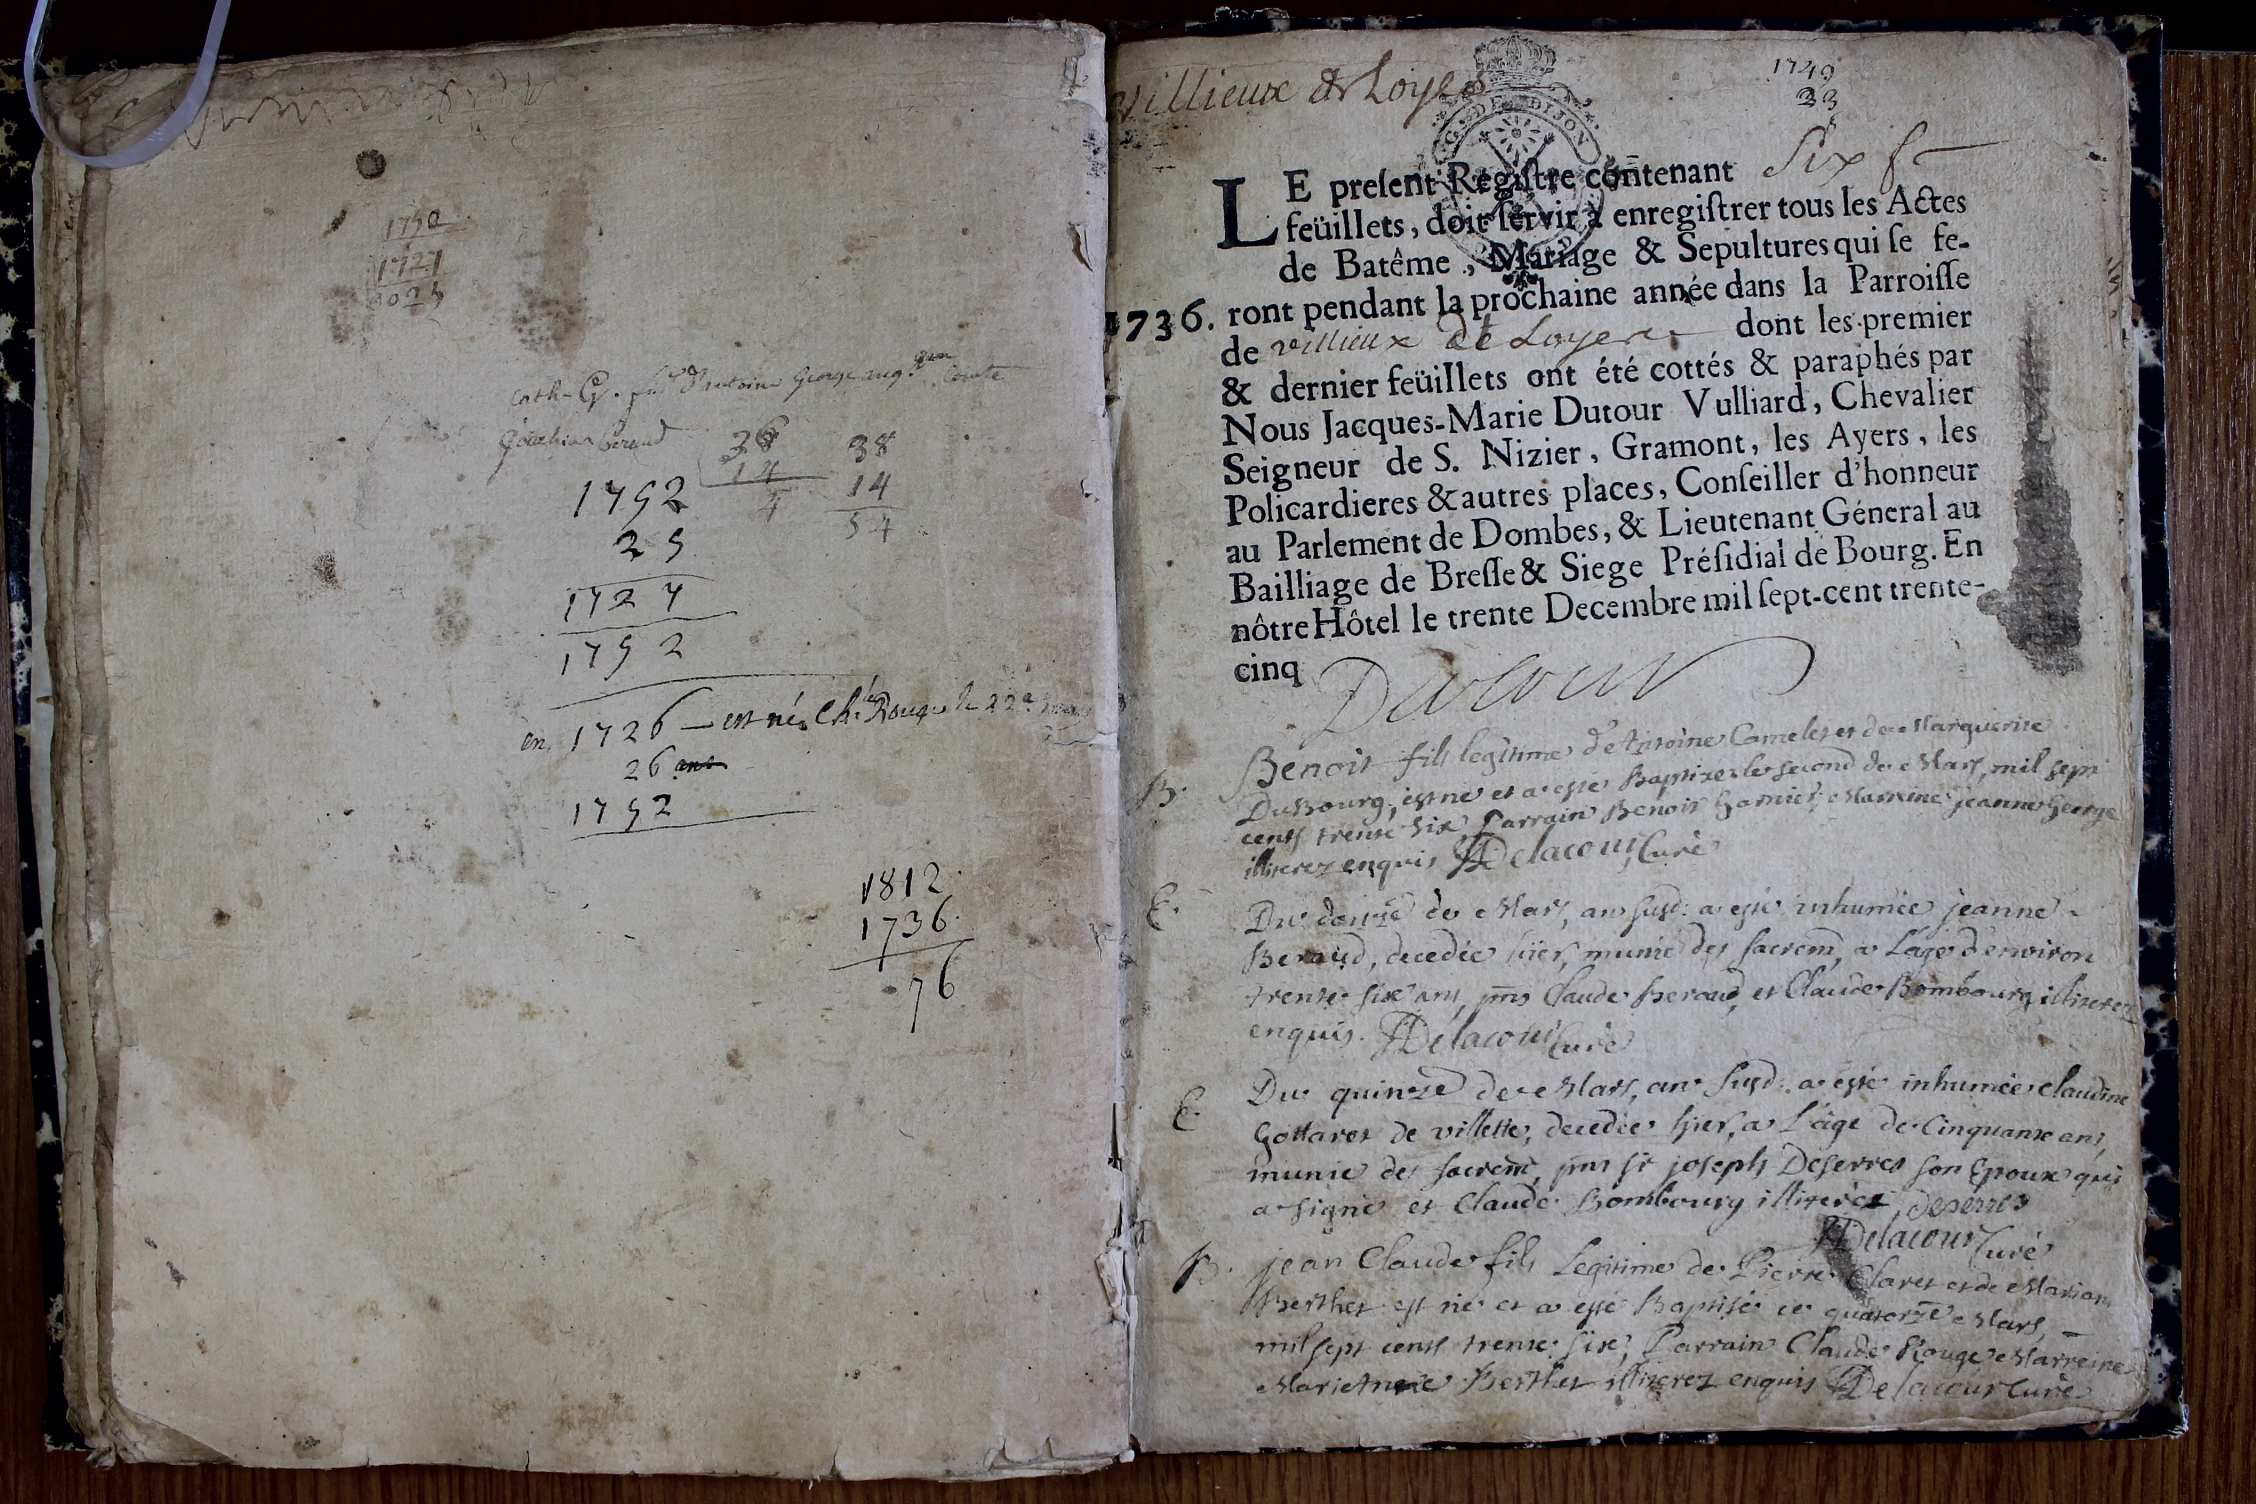 1750
1727
3025
cath - Cy. fils d'Antoine George aug. Comte
Joachim Beraud
36
14
4
38
14
54
1752
25
1727
1752
en 1726 - est né Ch. Rouge le 22e
26 ans
1752
1812
1736
76
villieux & Loyes
1749
33
G. DE DIJON
LE present Regiſtre contenant Six f
feüillets, doit ſervir à enregiſtrer tous les Actes
de Batême, Mariage & Sepultures qui ſe fe-
1736. ront pendant la prochaine année dans la Parroiſſe
de villieux de Loyes dont les premier
& dernier feüillets ont été cottés & paraphés par
Nous Jacques-Marie Dutour Vulliard, Chevalier
Seigneur de S. Nizier, Gramont, les Ayers, les
Policardieres & autres places, Conſeiller d'honneur
au Parlement de Dombes, & Lieutenant Géneral au
Bailliage de Breſſe & Siege Préſidial de Bourg. En
nôtre Hôtel le trente Decembre mil ſept-cent trente-
cinq
Dutour
B. Benoit fils legitime d'Antoine Camelet et de Marguerite
DuBourg, est né et a esté Baptizé le second de Mars, mil sept
cents trente six Parrain Benoit Garnier, Marreine jeanne George
illiterez enquis Delacour Curé
E. Du douzé de Mars, an susd: a esté inhumée jeanne
Beraud, decedée hier, munie des sacrem, a l'age d'environ
trente six ans, pnts Claude Beraud, et Claude Bombourg illiterez
enquis. Delacour Curé
E. Du quinze de Mars, an susd: a esté inhumée claudine
Gottaret de villette, decedée hier, a l'age de Cinquante ans,
munie des sacrem, pnts sr joseph Deserres son Epoux qui
a signé et Claude Bombourg illiteréz, deserres
Delacour Curé
B. jean Claude fils Legitime de Pierre Claret et de Mariane
Berthet est né et a esté Baptisé ce quatorze Mars,
mil sept cents trente six, Parrain Claude Rouge Marreine
Marie Anne Berthet illiterez enquis Delacour Curé